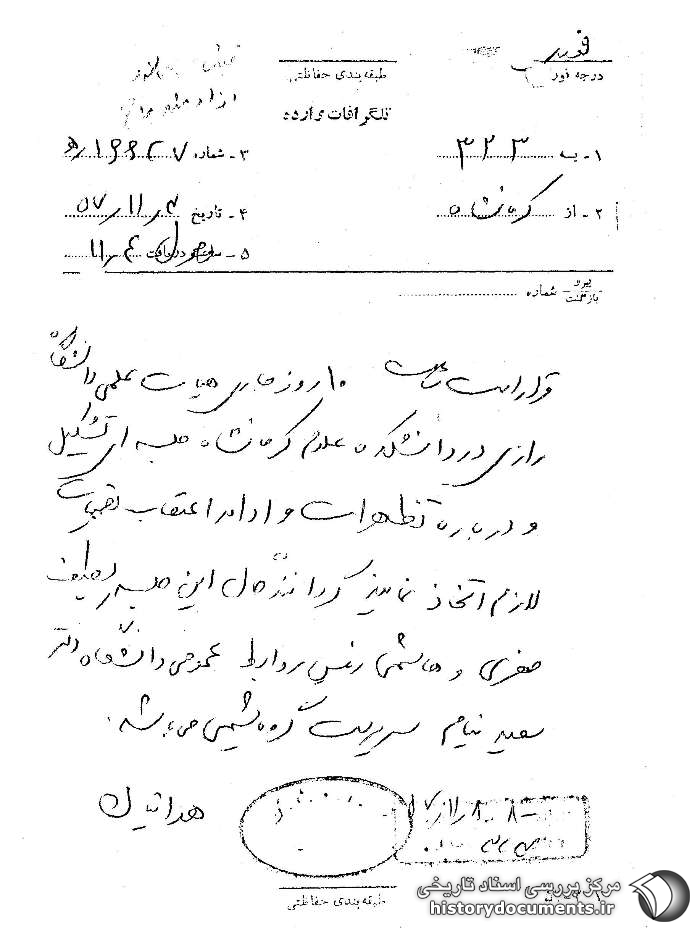 فوری
درجه فوریت
طبقه بندی حفاظتی
تلگرافات وارده
۱ - ب ۳۲۳
۳ - شماره ۱۶۶۲۷ ره
۲ - از کرمانشاه
۴ - تاریخ ۵۷٫۱۱٫۴
۵ - ۱۱٫۴
پیرو
بازگشت
شماره
قرار است ساعت ۱۰ روز جاری هیات علمی دانشگاه
رازی در دانشکده علوم کرمانشاه جلسه ای تشکیل
و درباره تظاهرات و ادامه اعتصاب تصمیمات
لازم اتخاذ نمایند گردانندگان این جلسه لطیف
صفری و هاشمی رئیس روابط عمومی دانشگاه دکتر
سعید نیام سرپرست گروه شیمی می باشد.
طبقه بندی حفاظتی
مرکز بررسی اسناد تاریخی
historydocuments.ir